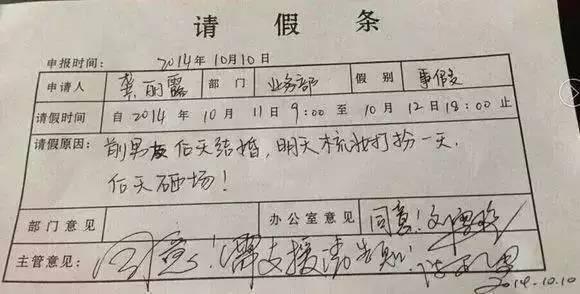 请假条
申报时间： 2014年10月10日
申请人 龚丽露 部门 业务部 假别 事假
请假时间 自2014年10月11日9:00至10月12日18:00止
请假原因： 前男友后天结婚，明天梳妆打扮一天.
后天砸场！
部门意见 办公室意见 同意！
主管意见： 同意！需支援请告知！
2014.10.10